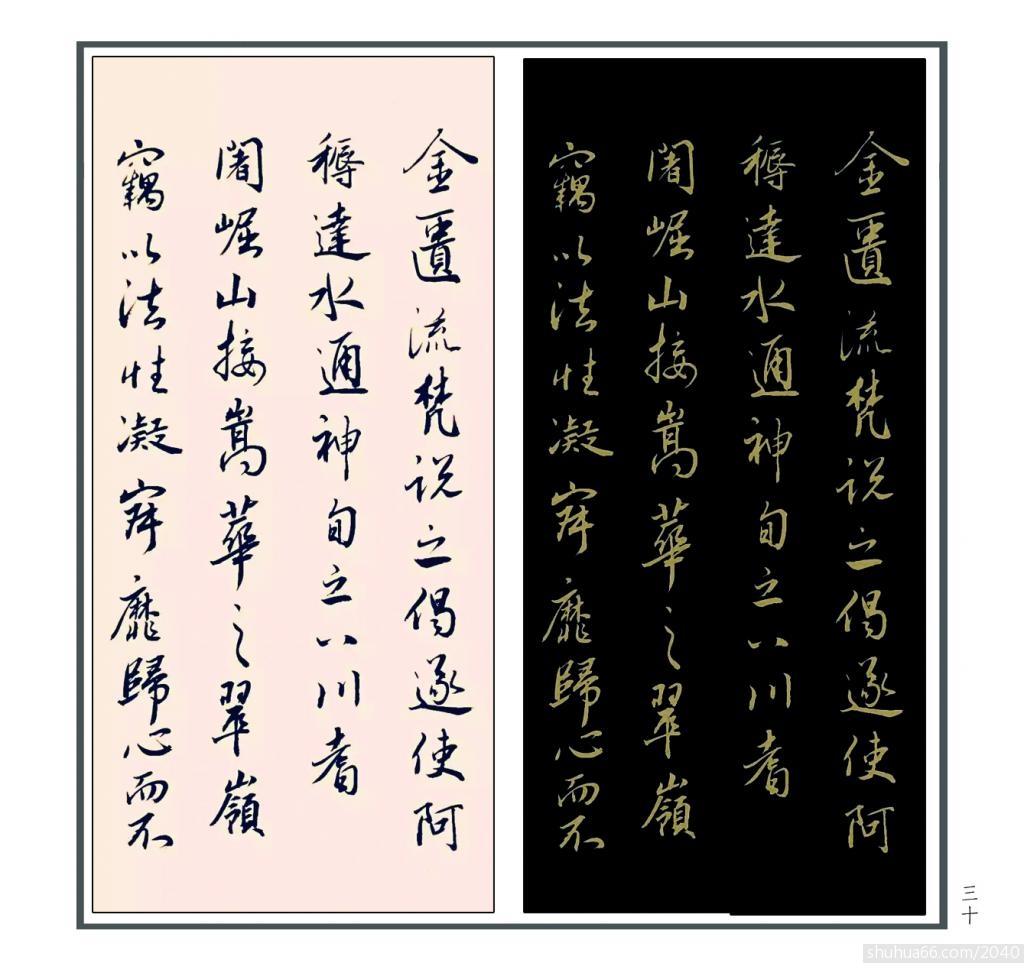 金匱流梵説之偈遂使阿
耨達水通神甸之八川耆
闍崛山接嵩華之翠嶺
竊以法性凝寂靡歸心而不
金匱流梵説之偈遂使阿
耨達水通神甸之八川耆
闍崛山接嵩華之翠嶺
竊以法性凝寂靡歸心而不
三十
shuhua66.com/2040